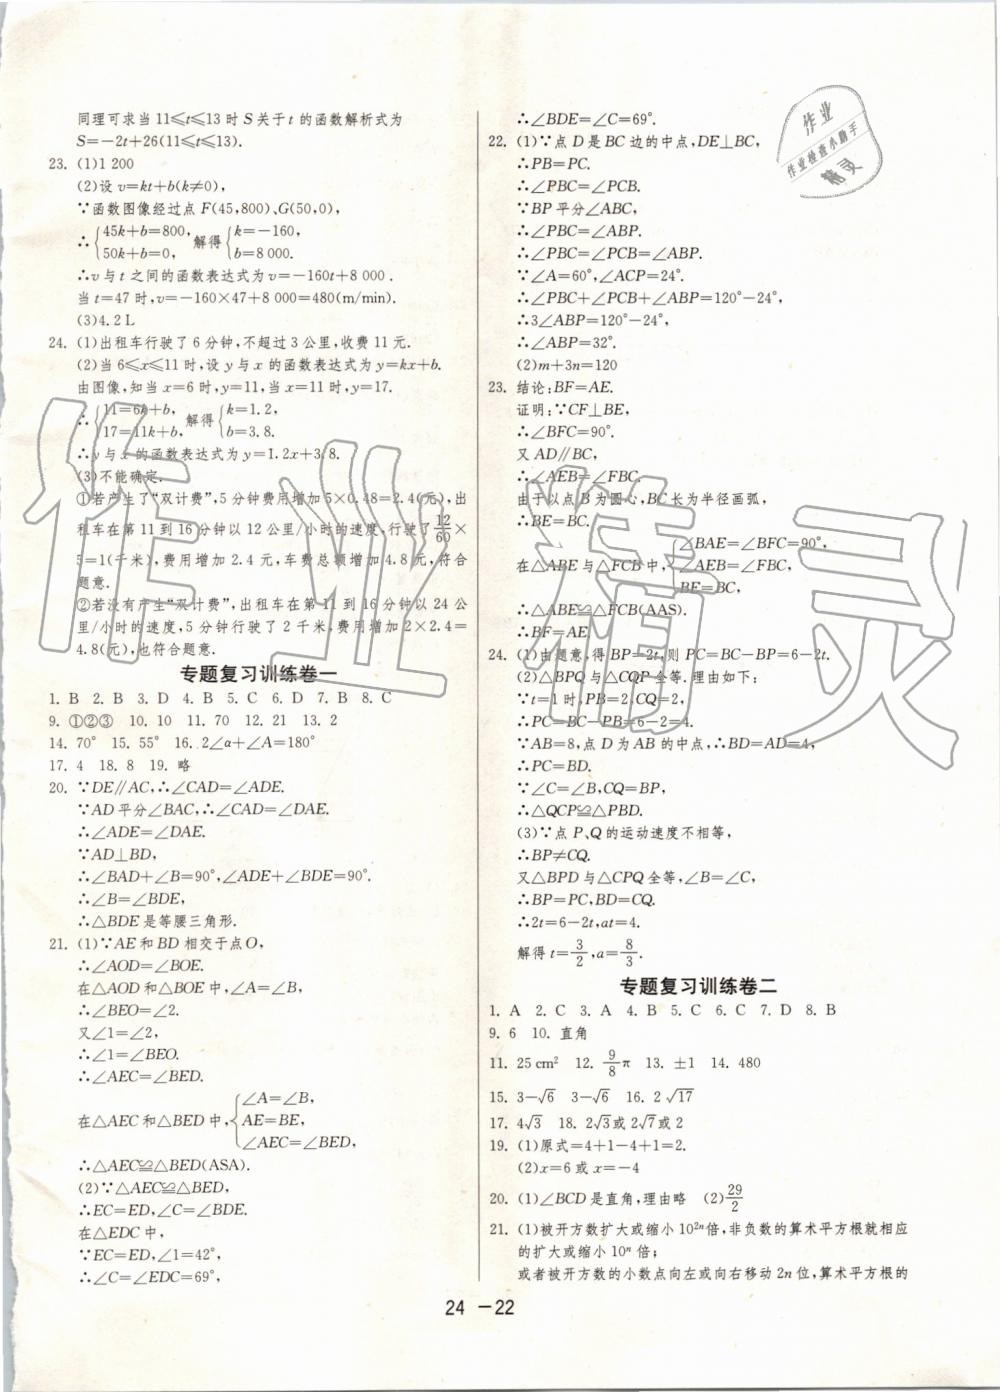 同理可求当 11≤t≤13 时 S 关于 t 的函数解析式为
S=-2t+26(11≤t≤13).
23. (1)1 200
(2)设 v=kt+b(k≠0),
∵函数图像经过点 F(45,800)、G(50,0),
∴{45k+b=800, 50k+b=0, 解得{k=-160, b=8 000.
∴v与 t 之间的函数表达式为 v=-160t+8 000 .
当 t=47 时,v=-160×47+8 000=480(m/min).
(3)4.2 L
24. (1)出租车行驶了 6 分钟,不超过 3 公里,收费 11 元.
(2)当 6≤x≤11 时,设 y 与 x 的函数表达式为 y=kx+b.
由图像,知当 x=6 时,y=11,当 x=11 时,y=17.
∴{11=6k+b, 17=11k+b, 解得{k=1.2, b=3.8.
∴y 与 x 的函数表达式为 y=1.2x+3.8.
(3)不能确定.
①若产生了“双计费”,5 分钟费用增加 5×0.48=2.4(元),出
租车在第 11 到 16 分钟以 12 公里/小时的速度,行驶了12/60×
5=1(千米),费用增加 2.4 元,车费总额增加 4.8 元,符合
题意.
②若没有产生“双计费”,出租车在第 11 到 16 分钟以 24 公
里/小时的速度,5 分钟行驶了 2 千米,费用增加 2×2.4=
4.8(元),也符合题意.
专题复习训练卷一
1. B 2. B 3. D 4. B 5. C 6. D 7. B 8. C
9. ①②③ 10. 10 11. 70 12. 21 13. 2
14. 70° 15. 55° 16. 2∠α+∠A=180°
17. 4 18. 8 19. 略
20. ∵DE∥AC,∴∠CAD=∠ADE.
∵AD 平分∠BAC,∴∠CAD=∠DAE.
∴∠ADE=∠DAE.
∵AD⊥BD,
∴∠BAD+∠B=90°,∠ADE+∠BDE=90°.
∴∠B=∠BDE,
∴△BDE 是等腰三角形.
21. (1)∵AE 和 BD 相交于点 O,
∴∠AOD=∠BOE.
在△AOD 和△BOE 中,∠A=∠B,
∴∠BEO=∠2.
又∠1=∠2,
∴∠1=∠BEO.
∴∠AEC=∠BED.
在△AEC 和△BED 中,{∠A=∠B, AE=BE, ∠AEC=∠BED,
∴△AEC≌△BED(ASA).
(2)∵△AEC≌△BED,
∴EC=ED,∠C=∠BDE.
在△EDC 中,
∵EC=ED,∠1=42°,
∴∠C=∠EDC=69°,
∴∠BDE=∠C=69°.
22. (1)∵点 D 是 BC 边的中点,DE⊥BC,
∴PB=PC.
∴∠PBC=∠PCB.
∵BP 平分∠ABC,
∴∠PBC=∠ABP.
∴∠PBC=∠PCB=∠ABP.
∵∠A=60°,∠ACP=24°.
∴∠PBC+∠PCB+∠ABP=120°-24°,
∴3∠ABP=120°-24°,
∴∠ABP=32°.
(2)m+3n=120
23. 结论:BF=AE.
证明:∵CF⊥BE,
∴∠BFC=90°.
又 AD∥BC,
∴∠AEB=∠FBC.
由于以点 B 为圆心,BC 长为半径画弧,
∴BE=BC.
在△ABE 与△FCB 中,{∠BAE=∠BFC=90°, ∠AEB=∠FBC, BE=BC,
∴△ABE≌△FCB(AAS).
∴BF=AE.
24. (1)由题意,得 BP=2t,则 PC=BC-BP=6-2t.
(2)△BPQ 与△CQP 全等,理由如下:
∵t=1 时,PB=2,CQ=2,
∴PC=BC-PB=6-2=4.
∵AB=8,点 D 为 AB 的中点,∴BD=AD=4,
∴PC=BD.
∵∠C=∠B,CQ=BP,
∴△QCP≌△PBD.
(3)∵点 P、Q 的运动速度不相等,
∴BP≠CQ.
又△BPD 与△CPQ 全等,∠B=∠C,
∴BP=PC,BD=CQ.
∴2t=6-2t,at=4.
解得 t=3/2,a=8/3.
专题复习训练卷二
1. A 2. C 3. A 4. B 5. C 6. C 7. D 8. B
9. 6 10. 直角
11. 25 cm² 12. 9/8π 13. ±1 14. 480
15. 3-√6 3-√6 16. 2√17
17. 4√3 18. 2√3或 2√7或 2
19. (1)原式=4+1-4+1=2.
(2)x=6 或 x=-4
20. (1)∠BCD 是直角,理由略 (2)29/2
21. (1)被开方数扩大或缩小 10²ⁿ倍,非负数的算术平方根就相应
的扩大或缩小 10ⁿ 倍;
或者被开方数的小数点向左或向右移动 2n 位,算术平方根的
24 -22
作业
作业检查小助手
精灵
作业精灵